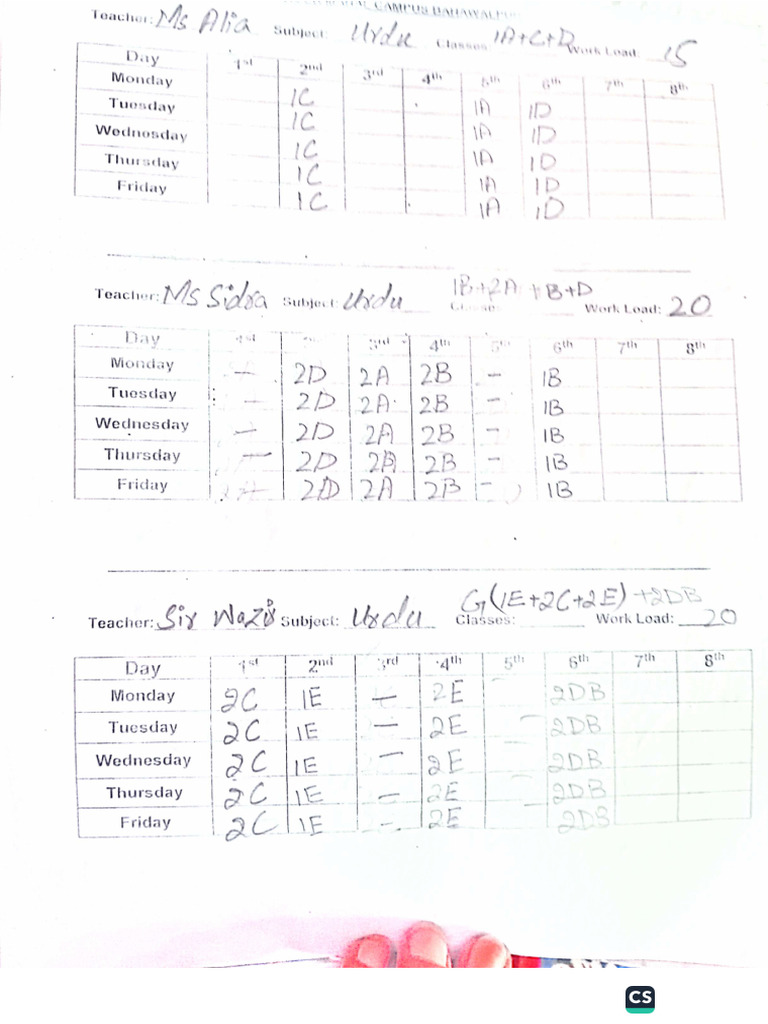 CAMPUS BAHAWALPUR
Teacher: Ms Alia Subject: Urdu Classes: 1A+C+D Work Load: 15
Day 1st 2nd 3rd 4th 5th 6th 7th 8th
Monday 1C 1A 1D
Tuesday 1C 1A 1D
Wednesday 1C 1A 1D
Thursday 1C 1A 1D
Friday 1C 1A 1D
Teacher: Ms Sidra Subject: Urdu Classes: 1B+2A+B+D Work Load: 20
Day 1st 3rd 4th 5th 6th 7th 8th
Monday - 2D 2A 2B - 1B
Tuesday - 2D 2A 2B - 1B
Wednesday - 2D 2A 2B - 1B
Thursday - 2D 2A 2B - 1B
Friday - 2D 2A 2B - 1B
Teacher: Sir Wazir Subject: Urdu Classes: G(1E+2C+2E)+2DB Work Load: 20
Day 1st 2nd 3rd 4th 5th 6th 7th 8th
Monday 2C 1E - 2E 2DB
Tuesday 2C 1E - 2E - 2DB
Wednesday 2C 1E - 2E - 2DB
Thursday 2C 1E - 2E - 2DB
Friday 2C 1E - 2E - 2DB
CS